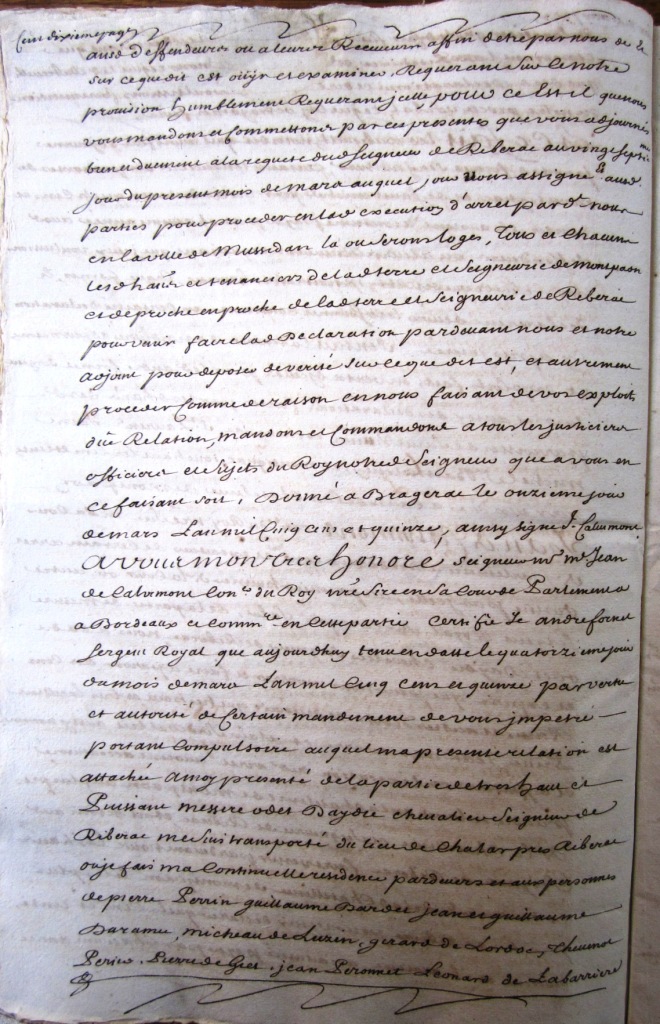 Cent dixieme page
ausd deffendeurs ou a leurs Receveurs affin detre par nous de
sur ce que dit est ouyr et examiner, Requerant sur ce notre
provision humblement Requerant jcelle, pour ce Est il que nous
vous mandons et Commettons par ces presentes que vous adjournés
bien et duement a la requete dud Seigneur de Riberac au vingt septie me
jour du present mois de mars auquel jour nous assigné ausd
parties pour proceder en lad execution d'arret par d nous
en la ville de Mussidan la ou serons loges, Tous et Chacuns
les d haus et tenanciers de lad terre et Seigneurie de Montpaon
et de proche en proche de lad terre et Seigneurie de Riberac
pour venir faire lad Declaration pardevant nous et notre
adjoint pour deposer de verité sur ce que dit est, et autrement
proceder Comme de raison en nous faisant de vos exploits
due Relation, mandons et Commandons a tous les justiciers
officiers et sujets du Roy notred Seigneur que a vous en
ce faisant soit, Donné a Bragerac le onzieme jour
de mars Lan mil Cinq cens et quinze, ainsy signé J. Calvimont
A vous mon tres honoré seigneur mr me Jean
de Calvimont Conr du Roy nre Sire en sa Cour de Parlement
a Bordeaux et Commre en Cette partie certifie Je andre fornet
Sergent Royal que aujourdhuy tenu en datte le quatorzieme jour
du mois de mars Lan mil Cinq cens et quinze par vertu
et autorité de Certain mandement de vous jmpetré
portant Compulsoire auquel ma presente relation est
attachée a moy presenté de la partie de tres haut et
Puissant messire odet Daydie chevalier Seigneur de
Riberac me suis transporté du lieu de Chalar pres Riberac
ou je fais ma Continuelle residence par devers et aux personnes
de pierre Perrin guillaume Bardet jean et guillaume
Daramie, micheau de Luzin, gerard de Lordoc, Theumot
Perier, Pierre de Giet, jean Peronnet Leonard de Labarriere